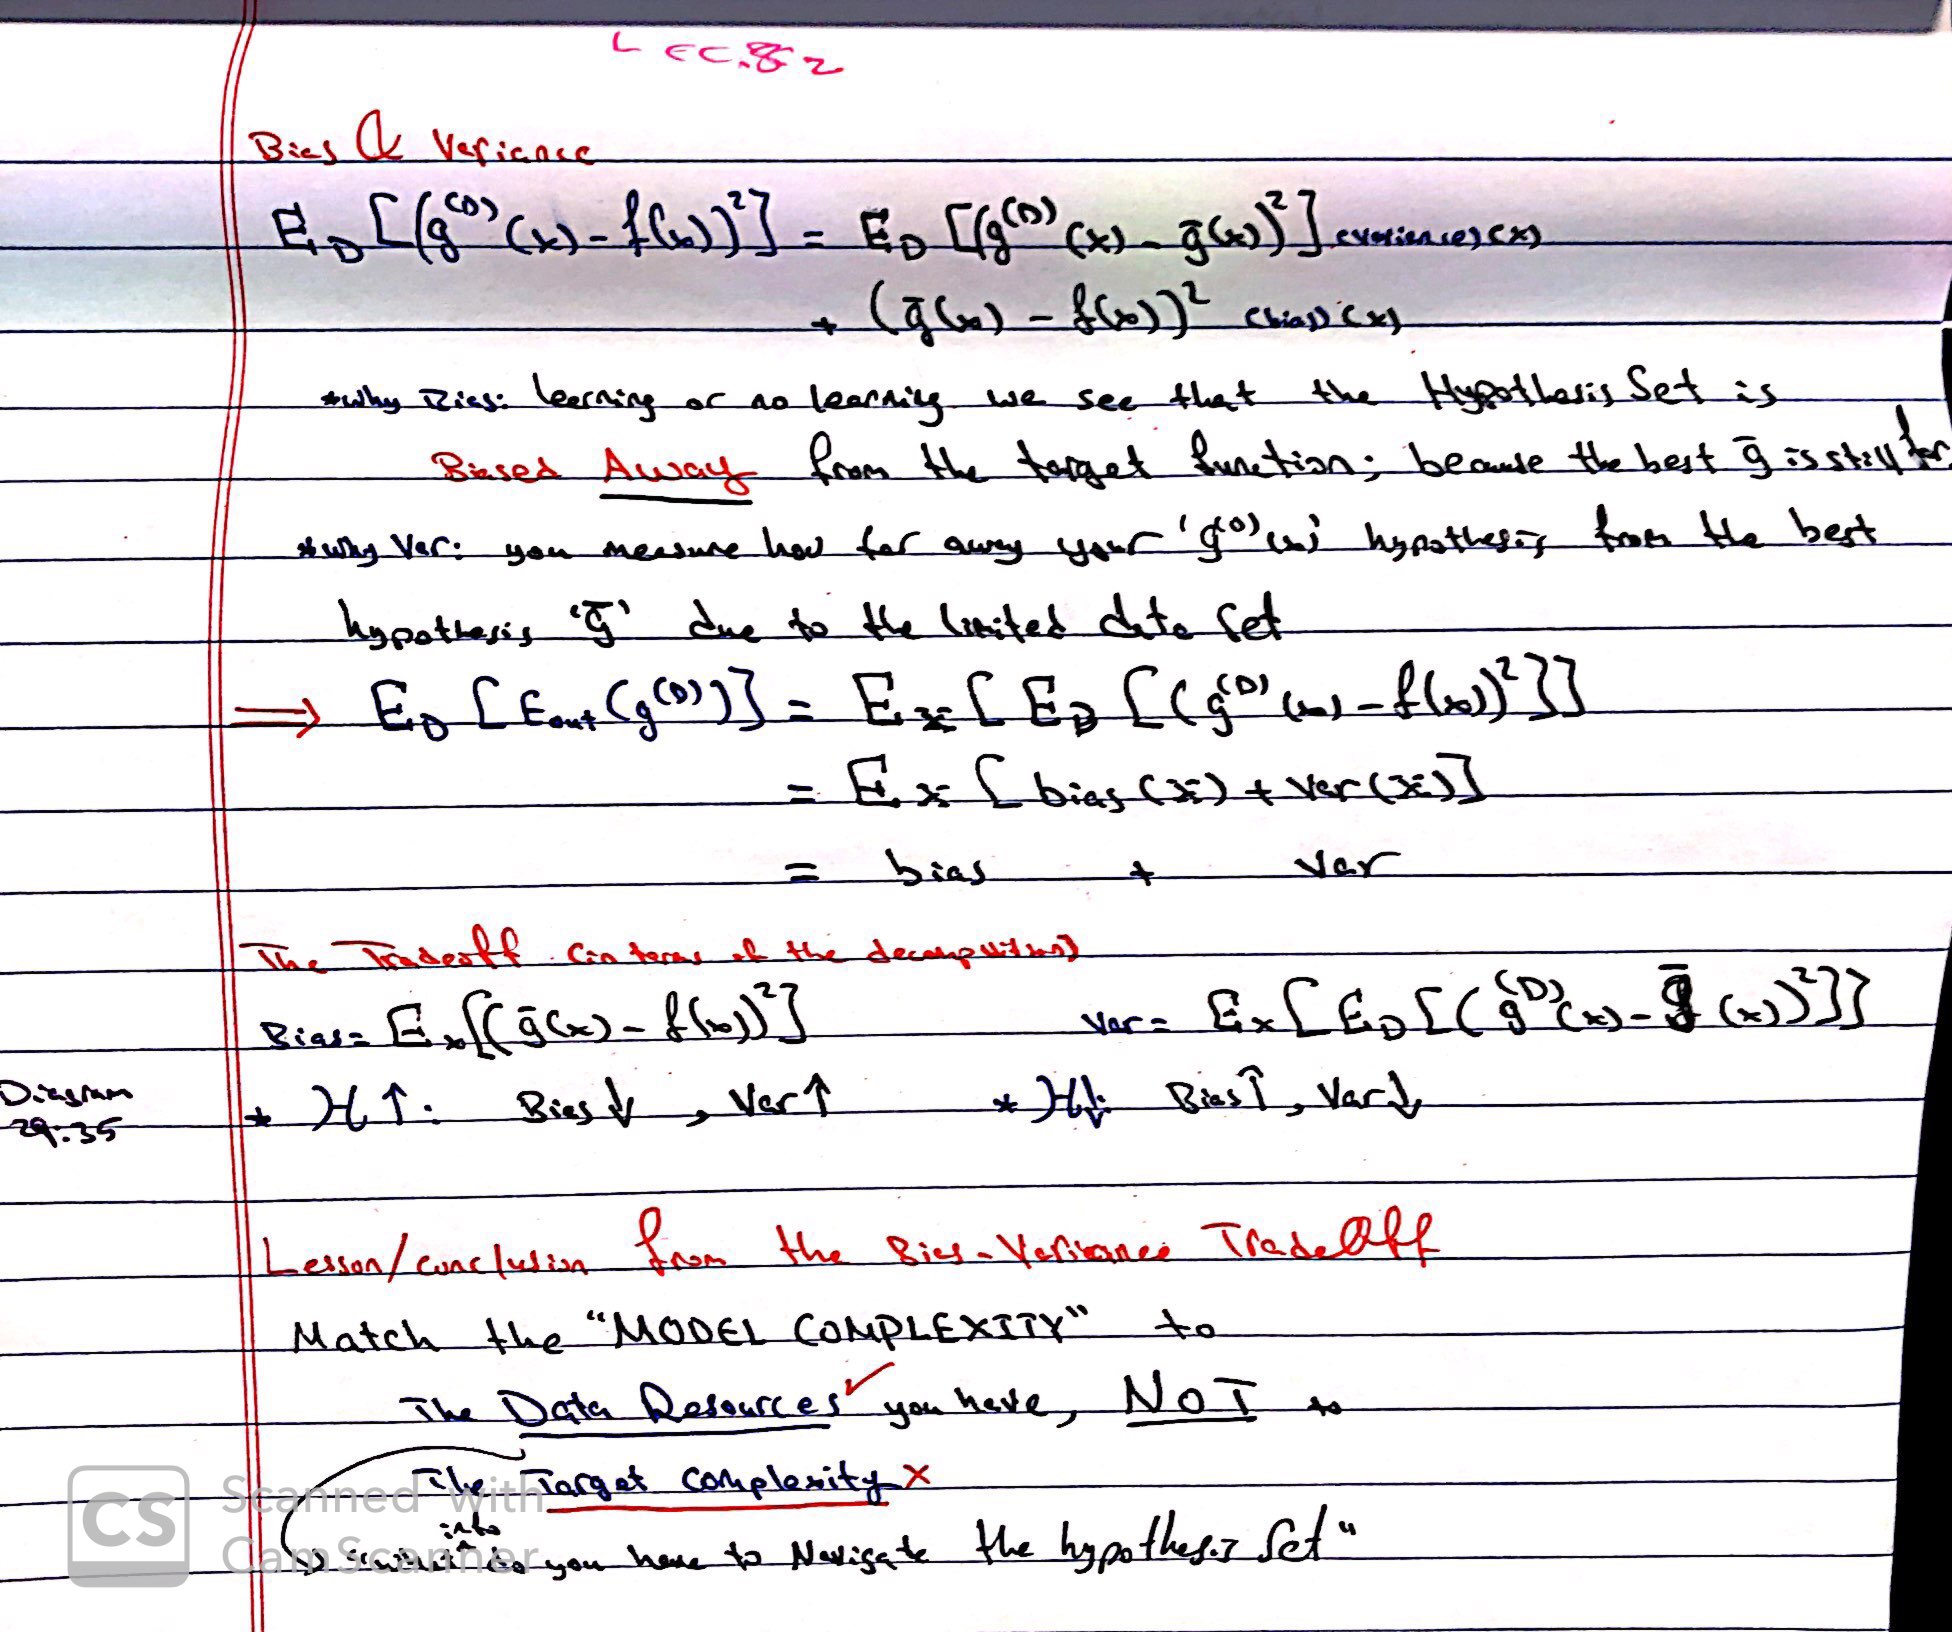 Lec.8 2
Bias & Variance
E_D [(g^(D)(x) - f(x))²] = E_D [(g^(D)(x) - ḡ(x))²] (variance)(x)
+ (ḡ(x) - f(x))² (bias)(x)
*why Bias: learning or no learning we see that the Hypothesis Set is
Biased Away from the target function; because the best ḡ is still far
*why Var: you measure how far away your 'g^(D)(x)' hypothesis from the best
hypothesis 'ḡ' due to the limited data set
⟹ E_D [E_out(g^(D))] = E_x [E_D [(g^(D)(x) - f(x))²]]
= E_x [bias(x) + var(x)]
= bias + var
The Tradeoff (in terms of the decomposition)
Bias = E_x[(ḡ(x) - f(x))²] Var = E_x[E_D[(g^(D)(x) - ḡ(x))²]]
Diagram
29:35
* H↑: Bias↓, Var↑ * H↓: Bias↑, Var↓
Lesson/conclusion from the Bias-Variance TradeOff
Match the "MODEL COMPLEXITY" to
The Data Resources ✓ you have, NOT to
The Target Complexity ×
into
you have to Navigate the hypothesis Set"
CS Scanned with
CamScanner